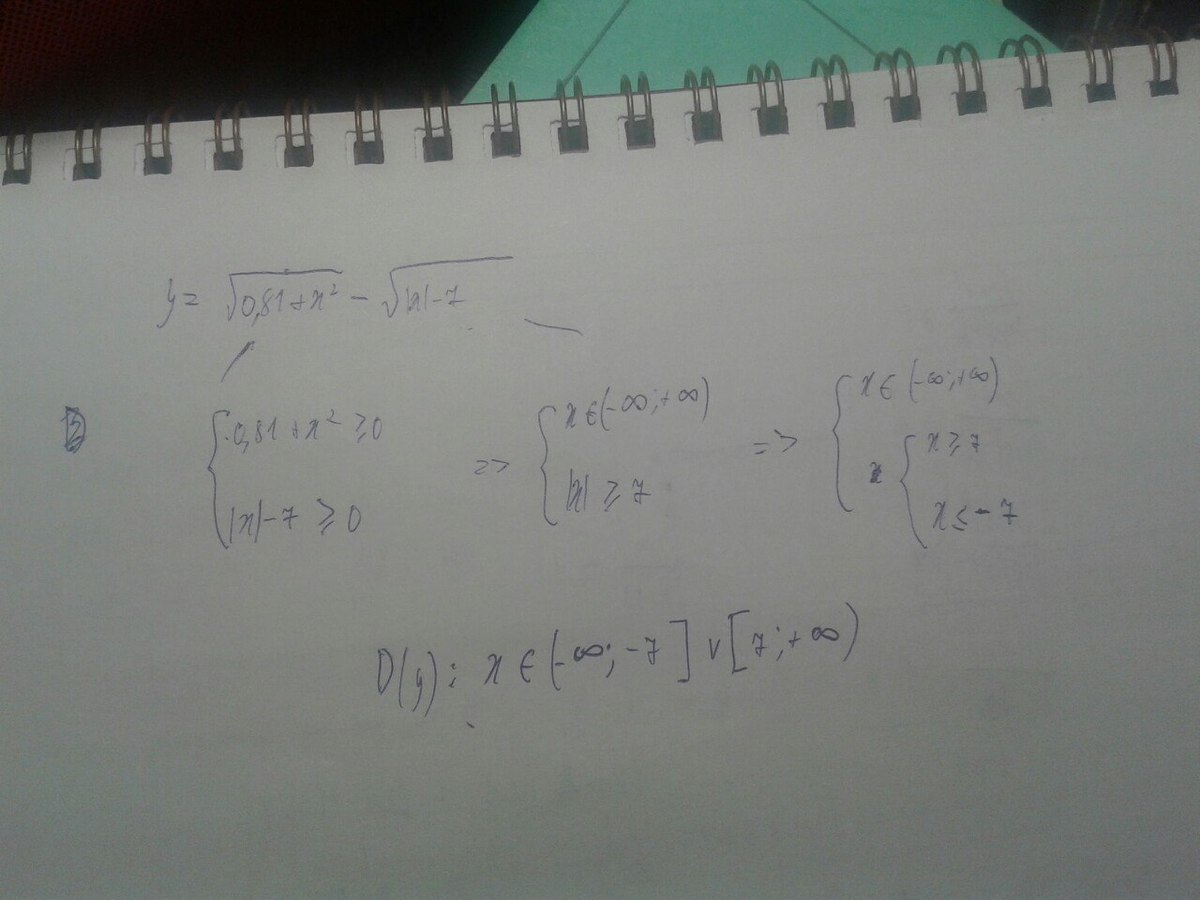 y = √(0,81+x²) − √(|x|−7)
{ 0,81+x² ≥ 0 => { x ∈ (−∞;+∞) => { x ∈ (−∞;+∞)
|x|−7 ≥ 0 |x| ≥ 7 { x ≥ 7
x ≤ −7
D(y): x ∈ (−∞; −7] ∨ [7; +∞)